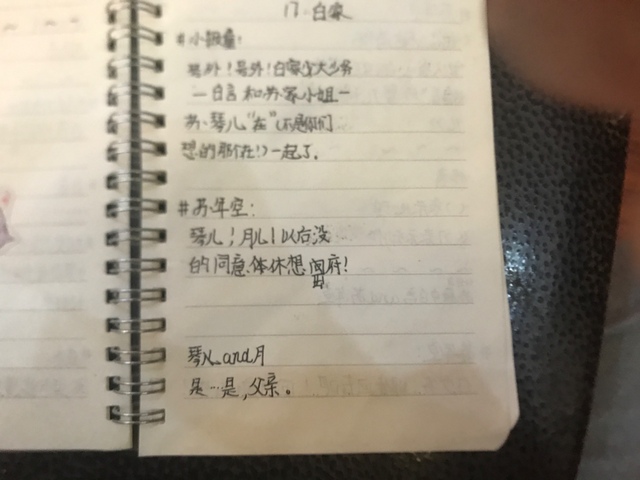 17·白家
#小报童：
号外！号外！白家大少爷
—白言和苏家小姐—
苏·琴儿“在”（不是你们
想的那个在！）一起了.
#苏年空：
琴儿！月儿！以后没
的同意.体休想 府！
出
琴儿 and 月
是…是,父亲。